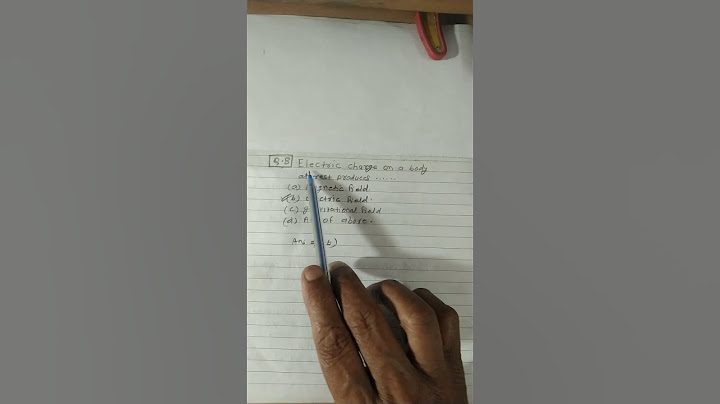 Q.8 Electric charge on a body
at rest produces ......
(a) magnetic field.
(b) electric field.
(c) gravitational field
(d) of above.
Ans = b)